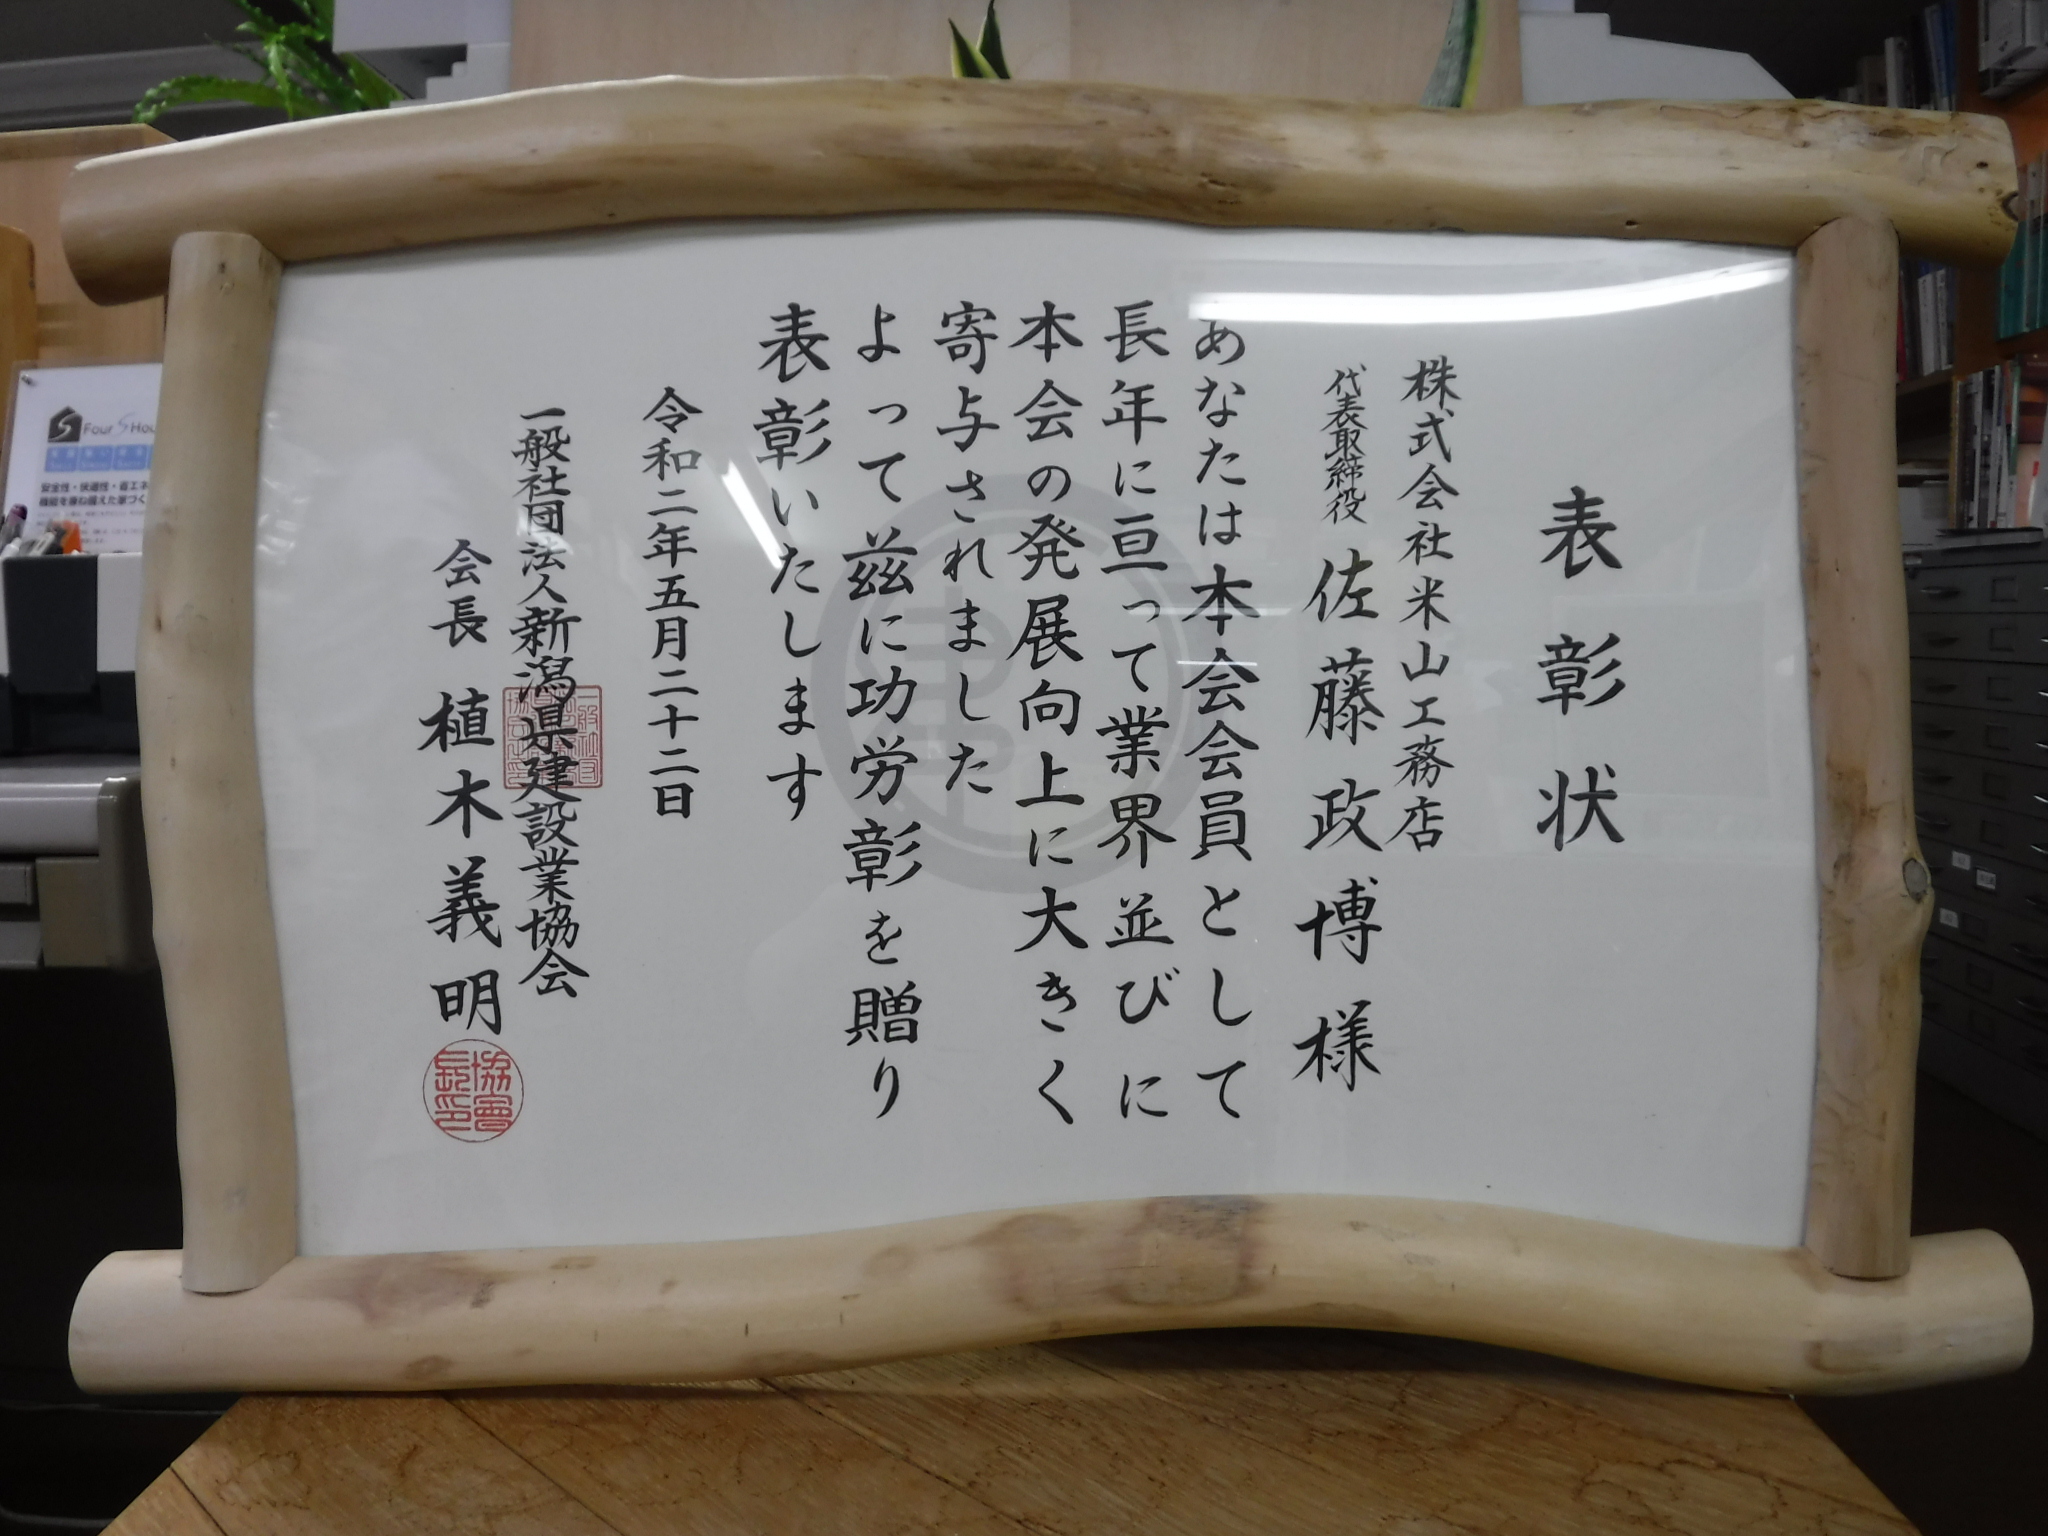 表彰状
株式会社米山工務店
代表取締役 佐藤政博様
あなたは本会会員として
長年に亘って業界並びに
本会の発展向上に大きく
寄与されました
よって茲に功労彰を贈り
表彰いたします
令和二年五月二十二日
一般社団法人新潟県建設業協会
会長 植木義明
協會長印
Four S Hou
安全性・快適性・省エネ
機能を兼ね備えた家づく